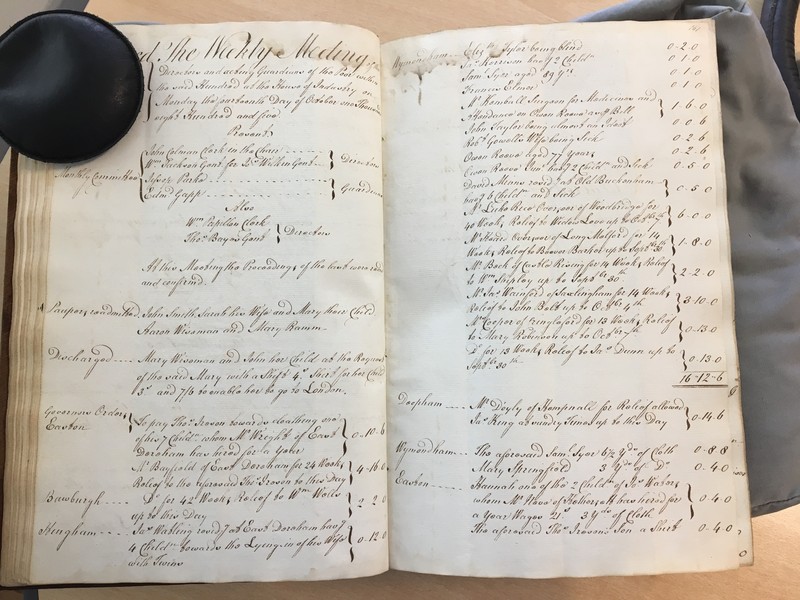 The Weekly Meeting of the
Directors and acting Guardians of the Poor within
the said Hundred at the House of Industry on
Monday the thirteenth Day of October one Thousand
eight Hundred and five
Present
John Colman Clerk in the Chair
Wm Jackson Gent for Dr Wilkin Gent } Directors
Monthly Committee
Joseph Parke
Edmd Gapp } Guardians
Also
Wm Papillon Clerk
Thos Bayes Gent } Directors
At this Meeting the Proceedings of the last were read
and confirmed.
Paupers readmitted. John Smith, Sarah his Wife and Mary their Child
Aaron Wiseman and Mary Ramm
Discharged Mary Wiseman and John her Child at the Request
of the said Mary with a Shift 4s Shirt for her Child
3s and 7/6 to enable her to go to London.
Governors Orders
Easton To pay Thos Ireson towards cloathing one
of his 7 Childn whom Mr Wright of East
Dereham has hired for a Year 0-10-6
Mr Bayfield of East Dereham for 24 Weeks
Relief to the aforesaid Thos Ireson to this day 4-16-0
Bawburgh Do for 42 Weeks Relief to Wm Wells
up to this Day 2-2-0
Hingham Jas Watling resid at East Dereham has
4 Childn towards the Lying in of his Wife
with Twins 0-12-0
Wymondham Elizth Tyler being blind 0-2-0
Jas Harrison has 2 Childn 0 1 0
Saml Syer aged 89 Yrs 0 1 0
Frances Elmer 0 1 0
Mr Kemball Surgeon for Medicines and
Attendance on Owen Reeve 1-6-0
John Taylor being almost an Ideot 0 0 6
Robt Gowells Wife being Sick 0-2-6
Owen Reeve aged 77 Years 0-2-6
Owen Reeve Junr has 2 Childn and Sick 0-5-0
David Mann resid at Old Buckenham
has 6 Childn and Sick 0-5-0
Overseer of Woodbridge for
40 Weeks Relief to Widow Love up to Octr 6-0-0
Overseer of Long Melford for 14
Weeks Relief to Barker up to Septr 30th 1-8-0
Mr Beck of Castle Rising for 14 Weeks Relief
to Wm Shipley up to Septr 30th 2-2-0
Mr Jas of for 14 Weeks
Relief to John Bolt up to Octr 4th 3-10-0
Mr Cooper of for 13 Weeks Relief
to Mary Robinson up to Octr 7th 0-13-0
Do for 13 Weeks Relief to Jas Dunn up to
Septr 30th 0-13-0
16-12-6
Deopham Mr Doyly of Hempnall for Relief allowed
Jas King at sundry Times up to this Day 0-14-6
Wymondham The aforesaid Saml Syer 6½ Yds of Cloth 0-8-8
Mary Springfield 3 Yds of Do 0-4-0
Easton Hannah one of the 2 Childn of Jas
whom Mr of has hired for
a Year Wages 21s 3 Yds of Cloth 0-4-0
The aforesaid Thos Iresons Son a Shirt 0-4-0